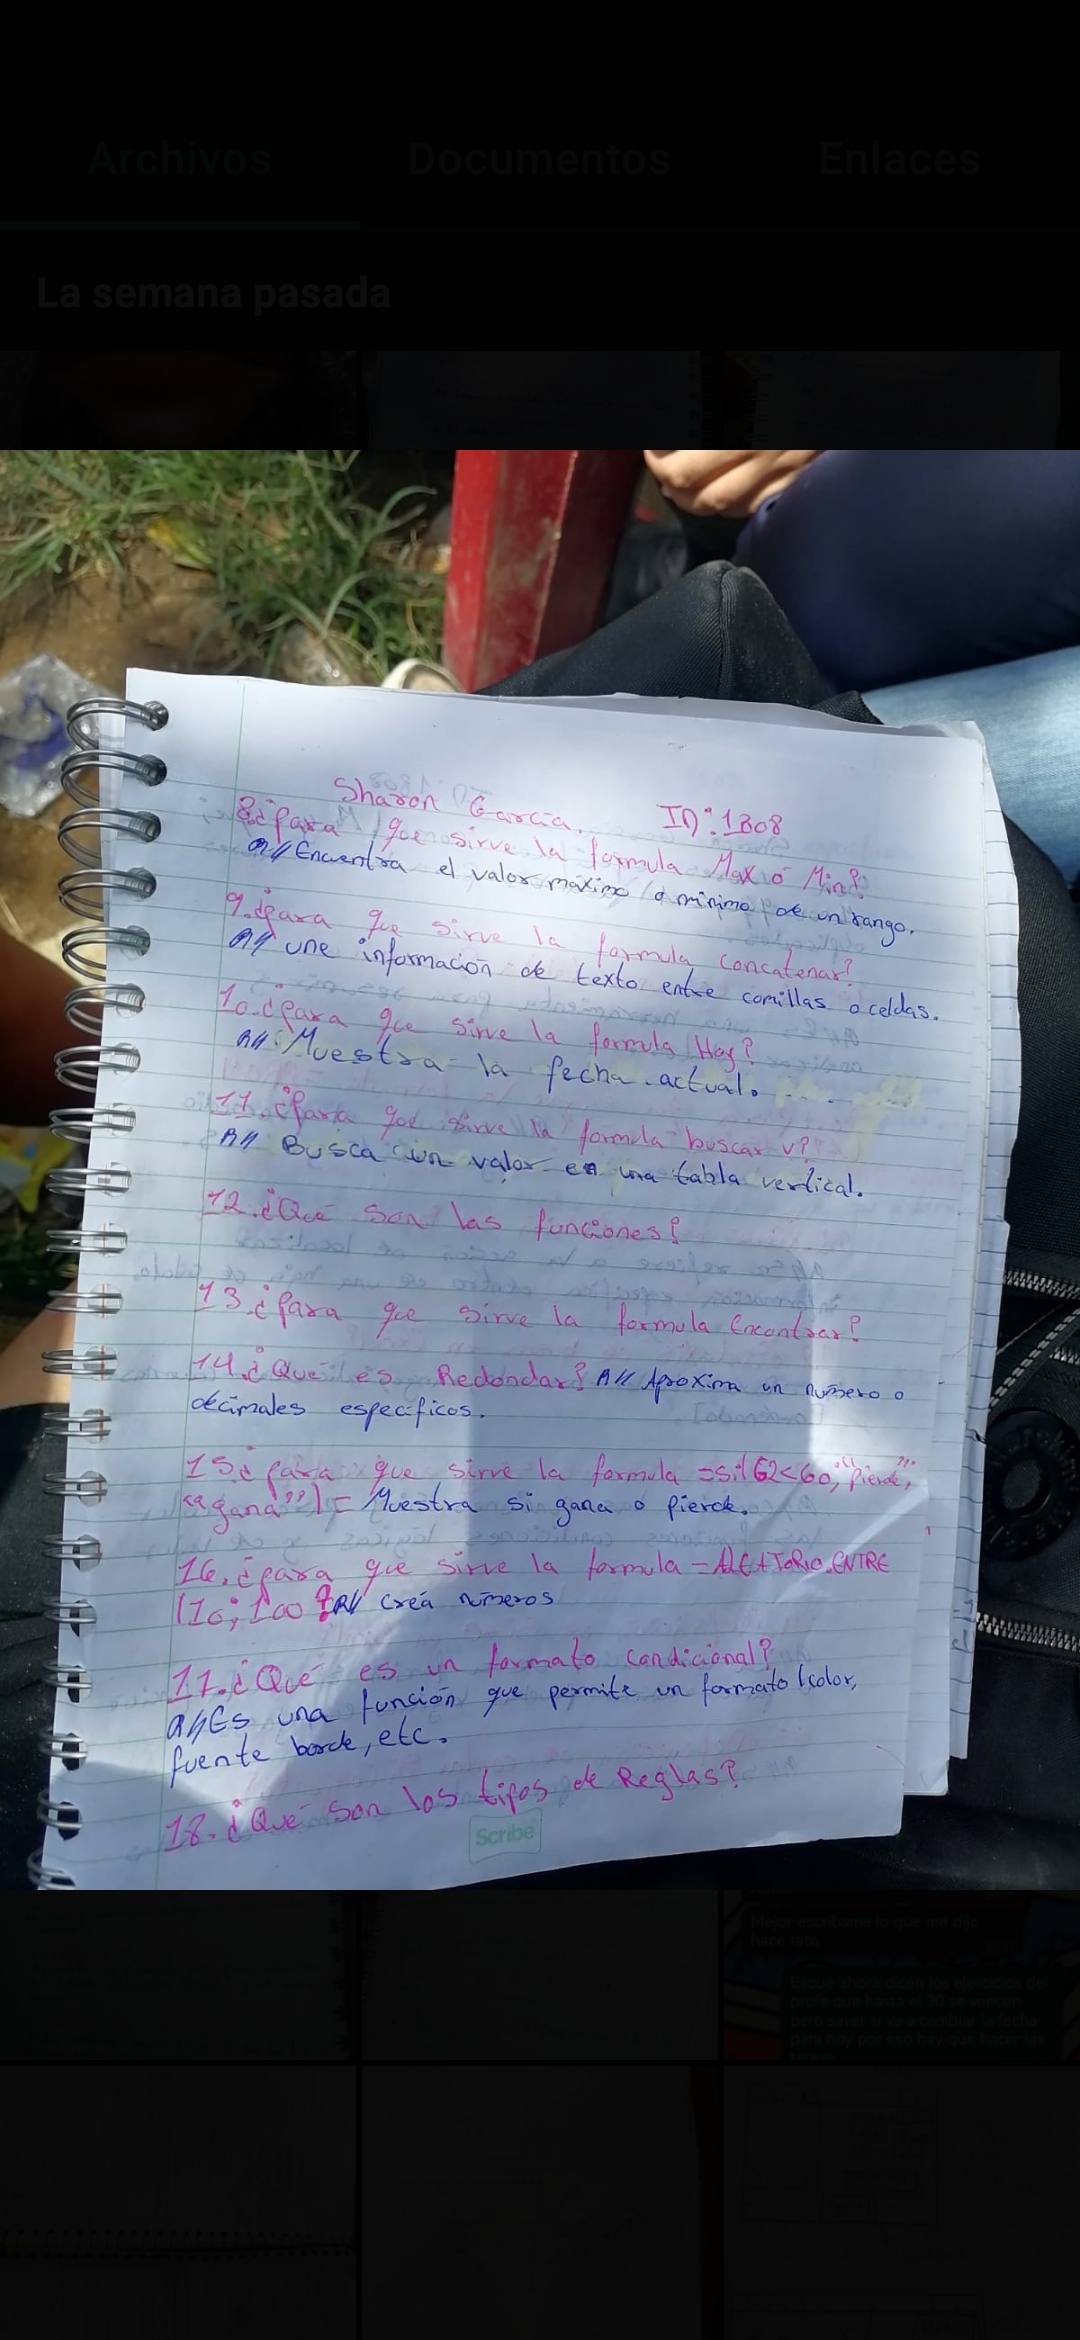 Archivos Documentos Enlaces
La semana pasada
Sharon García. ID: 1B08
8.¿para que sirve la formula Max o Min?
R// Encuentra el valor maximo o minimo de un rango.
9.¿para que sirve la formula concatenar?
R// une información de texto entre comillas o celdas.
10.¿para que sirve la formula Hoy?
R// Muestra la fecha actual.
11.¿Para que sirve la formula buscar v?
R// Busca un valor en una tabla vertical.
12.¿Qué son las funciones?
13.¿Para que sirve la formula Encontrar?
14.¿Qué es Redondar? R// Aproxima un número o
décimales especificos.
15.¿para que sirve la formula =si(G2<60;"pierde";
"gana")= Muestra si gana o pierde.
16.¿para que sirve la formula =ALEATORIO.ENTRE
(10;100? R// creá números
17.¿Qué es un formato condicional?
R// Es una función que permite un formato (color,
fuente borde, etc.
18.¿Qué son los tipos de Reglas?
Scribe
Mejor escribame lo que me dijo
hace rato
Esque ahora dicen los ejercicios del
profe que hasta el 20 se vencen
pero saver si va a cambiar la fecha
para hoy por eso hay que hacer las